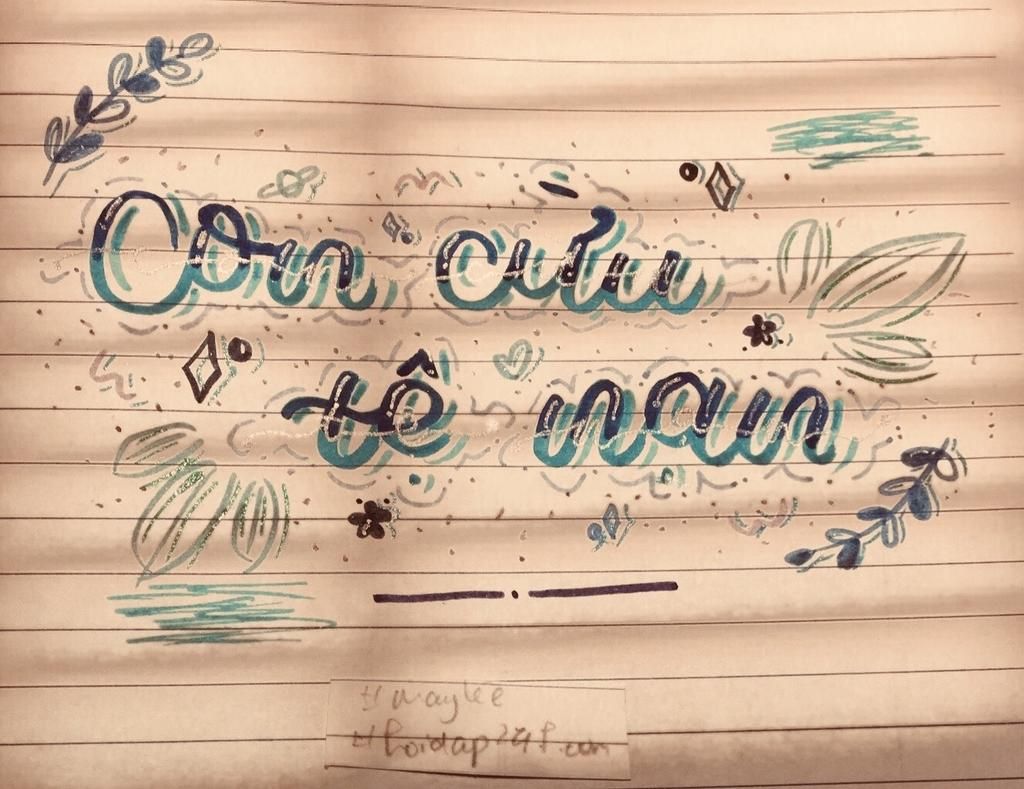 Con cừu
tệ nạn
#maylee
#hoidap247.com